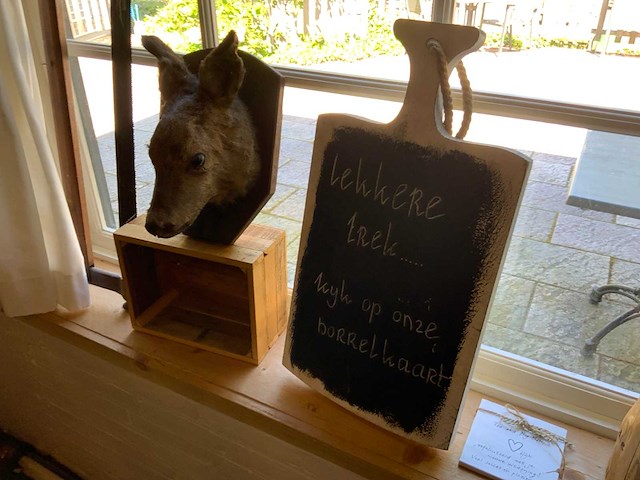 lekkere
trek.....
kijk op onze
borrelkaart